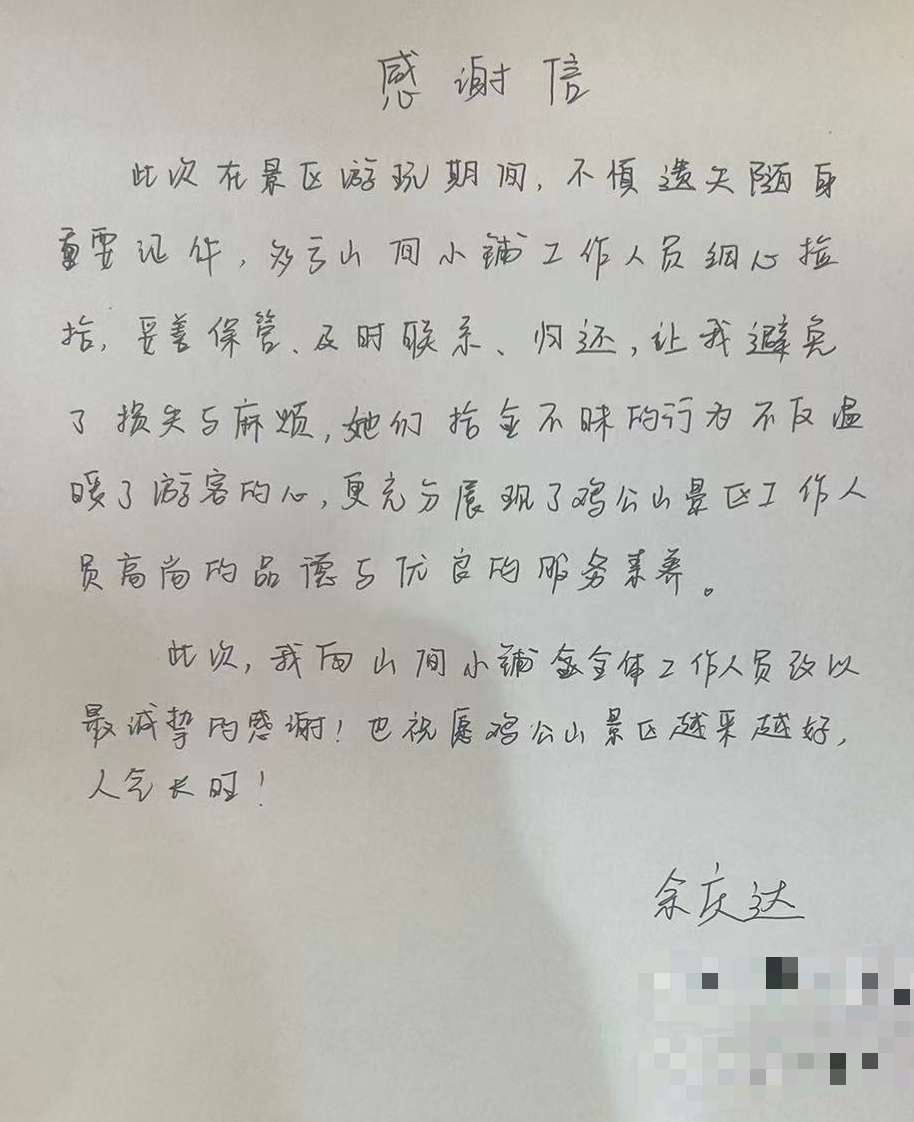 感谢信
此次在景区游玩期间,不慎遗失随身
重要证件,多亏山间小铺工作人员细心捡
拾,妥善保管、及时联系、归还,让我避免
了损失与麻烦,她们拾金不昧的行为不仅温
暖了游客的心,更充分展现了鸡公山景区工作人
员高尚的品德与优良的服务素养。
此次,我向山间小铺全体工作人员致以
最诚挚的感谢!也祝愿鸡公山景区越来越好,
人气长旺!
余庆达